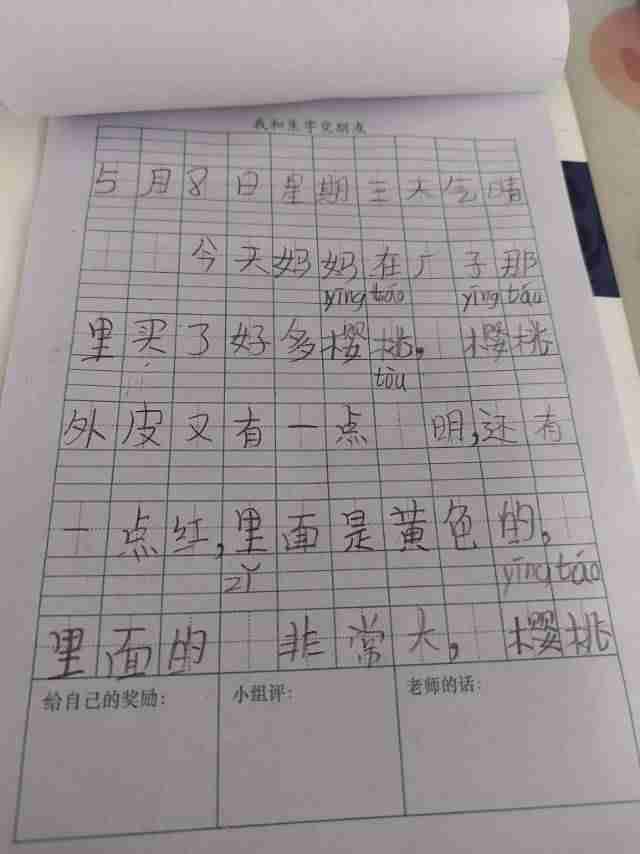 我和生字交朋友
5月8日星期三天气晴
今天妈妈在广子那
yīng táo yīng táo
里买了好多樱桃，樱桃
tòu
外皮又有一点 明，还有
一点红，里面是黄色的，
zǐ yīng táo
里面的 非常大，樱桃
给自己的奖励： 小组评： 老师的话：